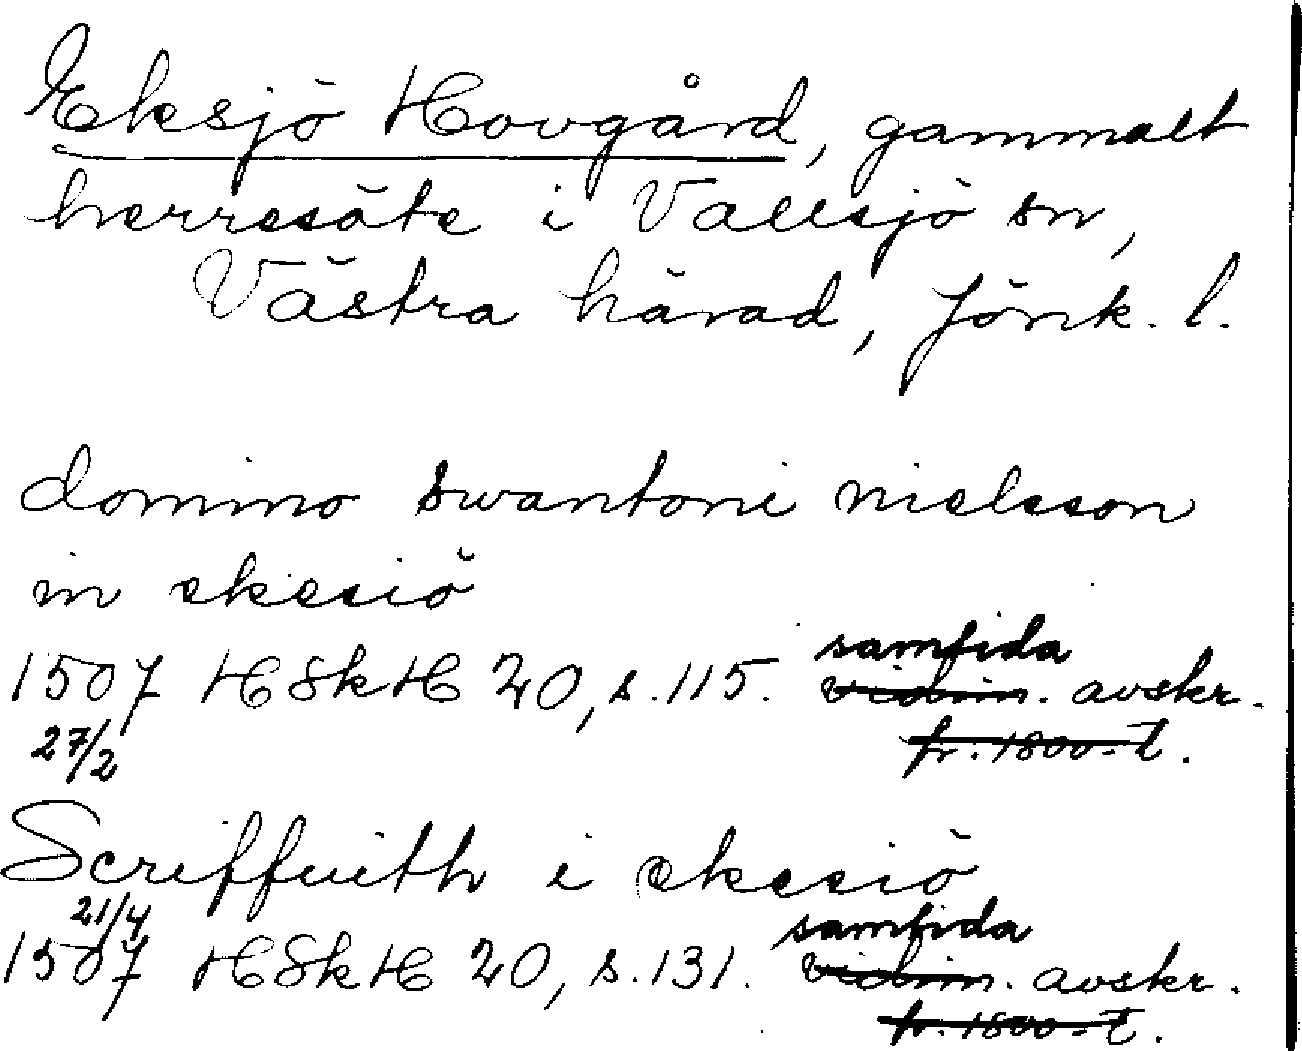 Eksjö Hovgård, gammalt
herresäte i Vallsjö sn,
Västra härad, Jönk. l.
domino swantoni nielsson
in ekesiö
samtida
1507 HSkH 20, s. 115. vidim. avskr.
27/2 fr. 1800-t.
Scriffuith i ekesiö
21/4 samtida
1507 HSkH 20, s. 131. vidim. avskr.
fr. 1800-t.